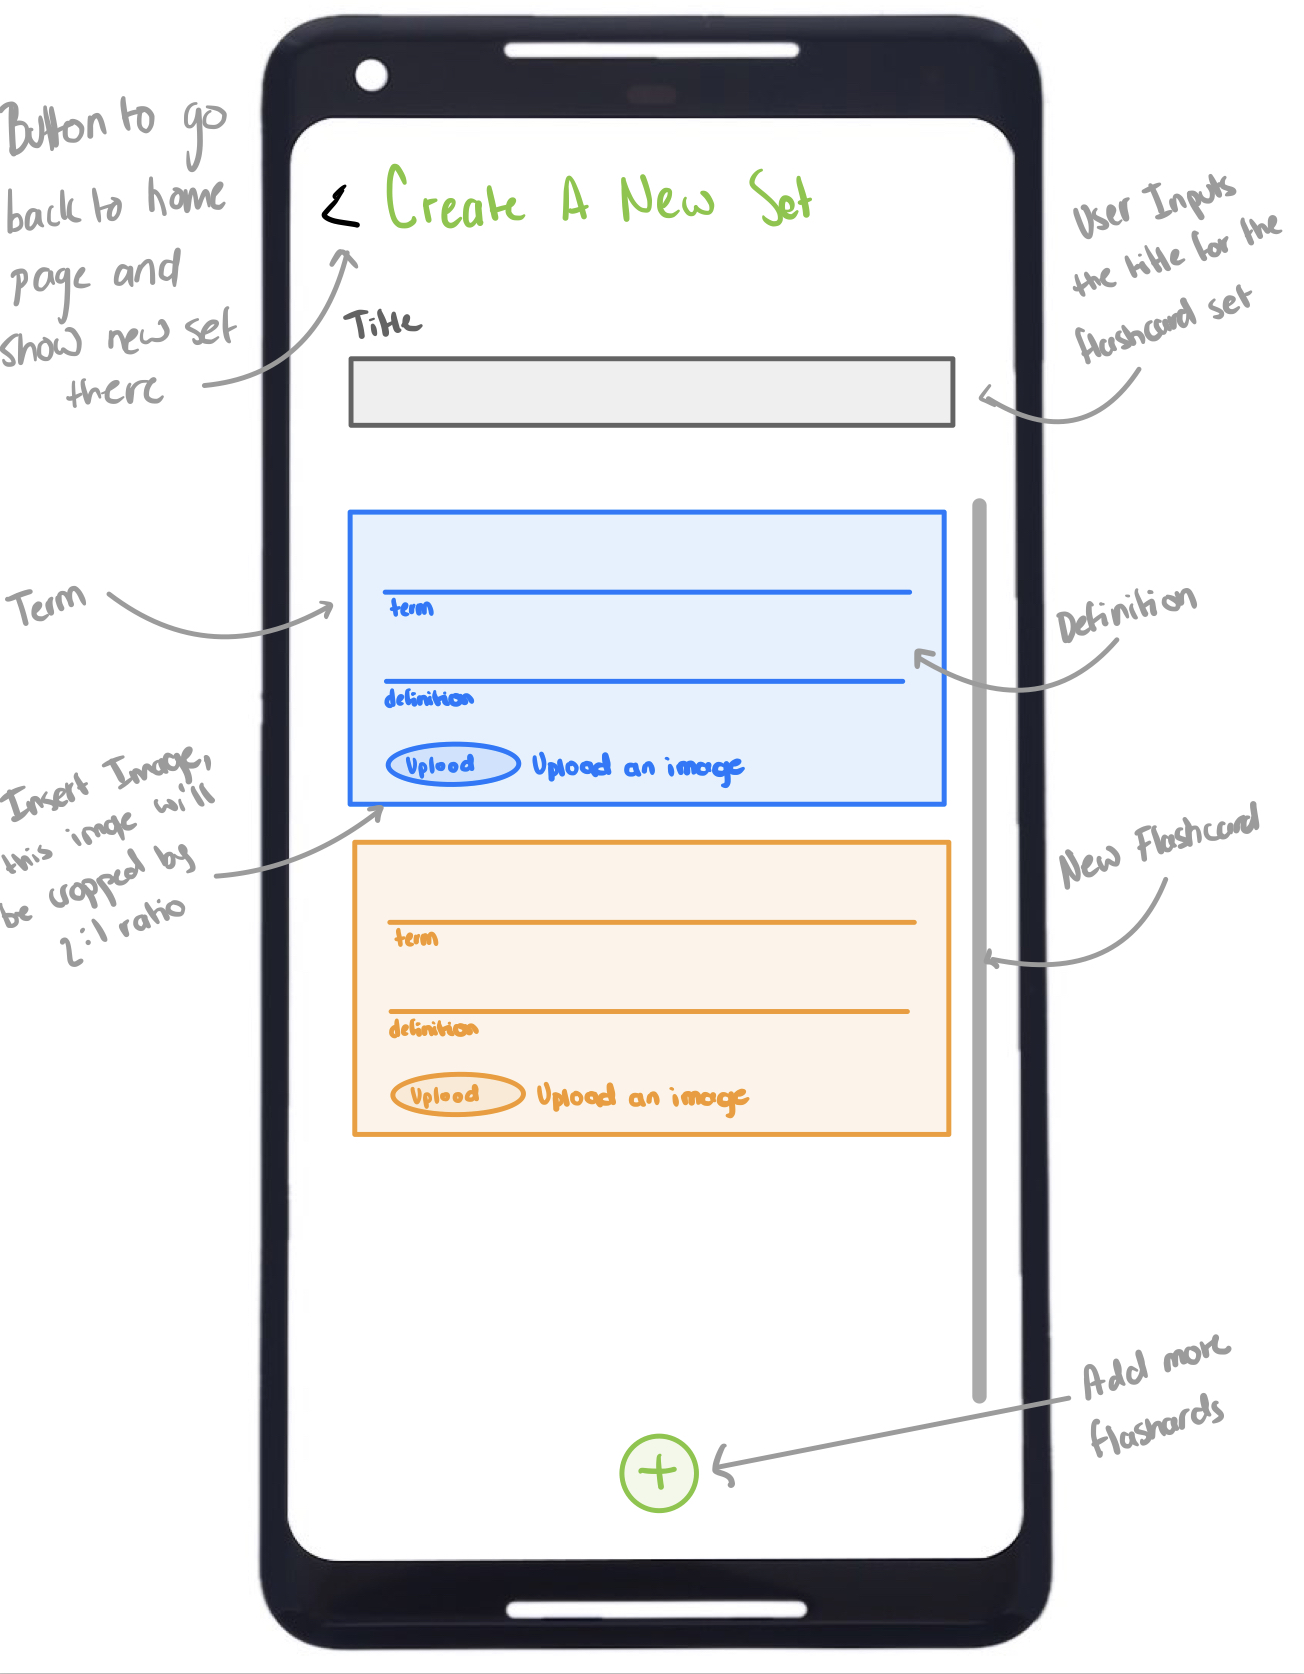 Button to go
back to home
page and
show new set
there
< Create A New Set
User Inputs
the title for the
flashcard set
Title
Term
term
definition
Upload Upload an image
Definition
Insert Image,
this image will
be cropped by
2:1 ratio
New Flashcard
term
definition
Upload Upload an image
Add more
flashards
+